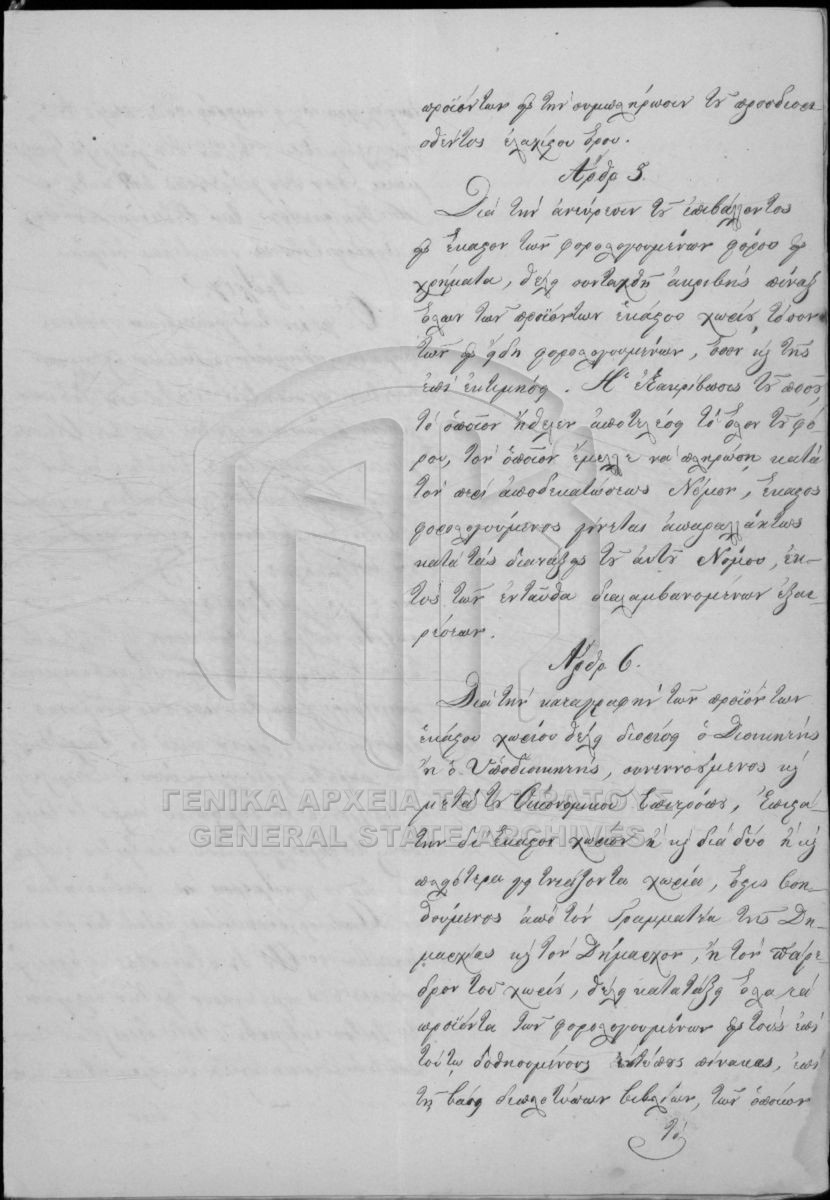 προϊόντων εἰς τὴν συμπλήρωσιν τοῦ προσδιορι-
σθέντος ἐλαχίςου ὅρου.
Ἄρθρ 5.
Διὰ τὴν ἀνεύρεσιν τοῦ ἐπιβάλλοντος
εἰς ἕκαςον τῶν φορολογουμένων φόρου εἰς
χρήματα, θέλει συνταχθῆ ἀκριβὴς πίναξ
ὅλων τῶν προϊόντων ἑκάςου χωρίου, τόσον
τῶν εἰς εἴδη φορολογουμένων, ὅσον κ τῆς
ἐπὶ ἐκτιμήσει. Ἡ ἐξακρίβωσις τοῦ ποσοῦ,
τὸ ὁποῖον ἤθελεν ἀποτελέσει τὸ ὅλον τοῦ φό-
ρου, τὸν ὁποῖον ἔμελλε νὰ πληρώσῃ κατὰ
τὸν περὶ ἀποδεκατώσεως Νόμον, ἕκαςος
φορολογούμενος γίνεται ἀπαραλλάκτως
κατὰ τὰς διατάξεις τοῦ αὐτοῦ Νόμου, ἐκ-
τὸς τῶν ἐνταῦθα διαλαμβανομένων ἐξαι-
ρέσεων.
Ἄρθρ 6.
Διὰ τὴν καταγραφὴν τῶν προϊόντων
ἑκάςου χωρίου θέλει διορίσει ὁ Διοικητὴς
ἢ ὁ Ὑποδιοικητὴς, συνεννοούμενος κ
μετὰ τοῦ Οἰκονομικοῦ Ἐπιτρόπου, Ἐπιςά-
την δι' ἕκαςον χωρίον ἢ κ διὰ δύο ἢ κ
πλειότερα γειτνιάζοντα χωρία, ὅςις βοη-
θούμενος ἀπὸ τὸν Γραμματέα τῆς Δη-
μαρχίας κ τὸν Δήμαρχον, ἢ τὸν Πάρε-
δρον τοῦ χωρίου, θέλει κατατάξει ὅλα τὰ
προϊόντα τῶν φορολογουμένων εἰς τοὺς ἐπὶ
τούτῳ δοθησομένους ἐντύπους πίνακας, ἐπὶ
τῇ βάσει διπλοτύπων βιβλίων, τῶν ὁποίων
τὸ
ΓΕΝΙΚΑ ΑΡΧΕΙΑ ΤΟΥ ΚΡΑΤΟΥΣ
GENERAL STATE ARCHIVES